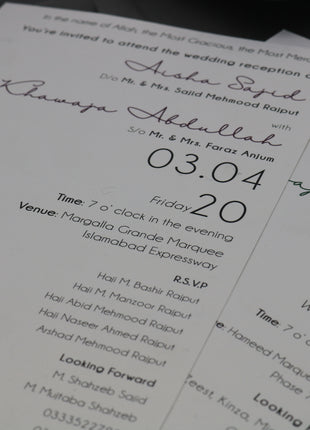 In the name of Allah, the Most Gracious, the Most
You're invited to attend the wedding reception
Aisha Sajid
D/o Mr. & Mrs. Sajid Mehmood Rajput
with
Khawaja Abdullah
S/o Mr. & Mrs. Faraz Anjum
03.04
Friday 20
Time: 7 o' clock in the evening
Venue: Margalla Grande Marquee
Islamabad Expressway
R.S.V.P
Haji M. Bashir Rajput
Haji M. Manzoor Rajput
Haji Abid Mehmood Rajput
Haji Naseer Ahmed Rajput
Arshad Mehmood Rajput
Looking Forward
M. Shahzeb Sajid
M. Mujtaba Shahzeb
Time: 7 o'
Hameed Marquee
Phase 7
Zeest, Kinza,